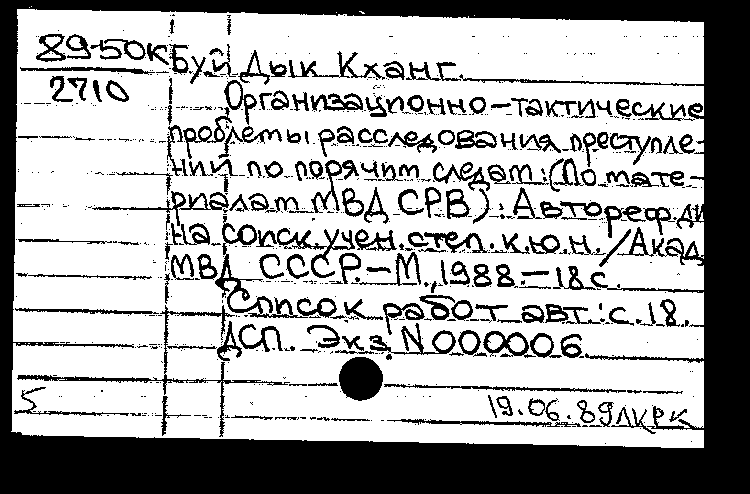 89-50К Буй Дык Кханг.
2710
Организационно-тактические
проблемы расследования преступле-
ний по горячим следам: (По мате-
риалам МВД СРВ): Автореф. ди
на соиск. учен. степ. к.ю.н. / Акад.
МВД СССР. - М., 1988. - 18 с.
Список работ авт.: с. 18.
ДСП. Экз. N 000006.
5
19.06.89 ЛКРК